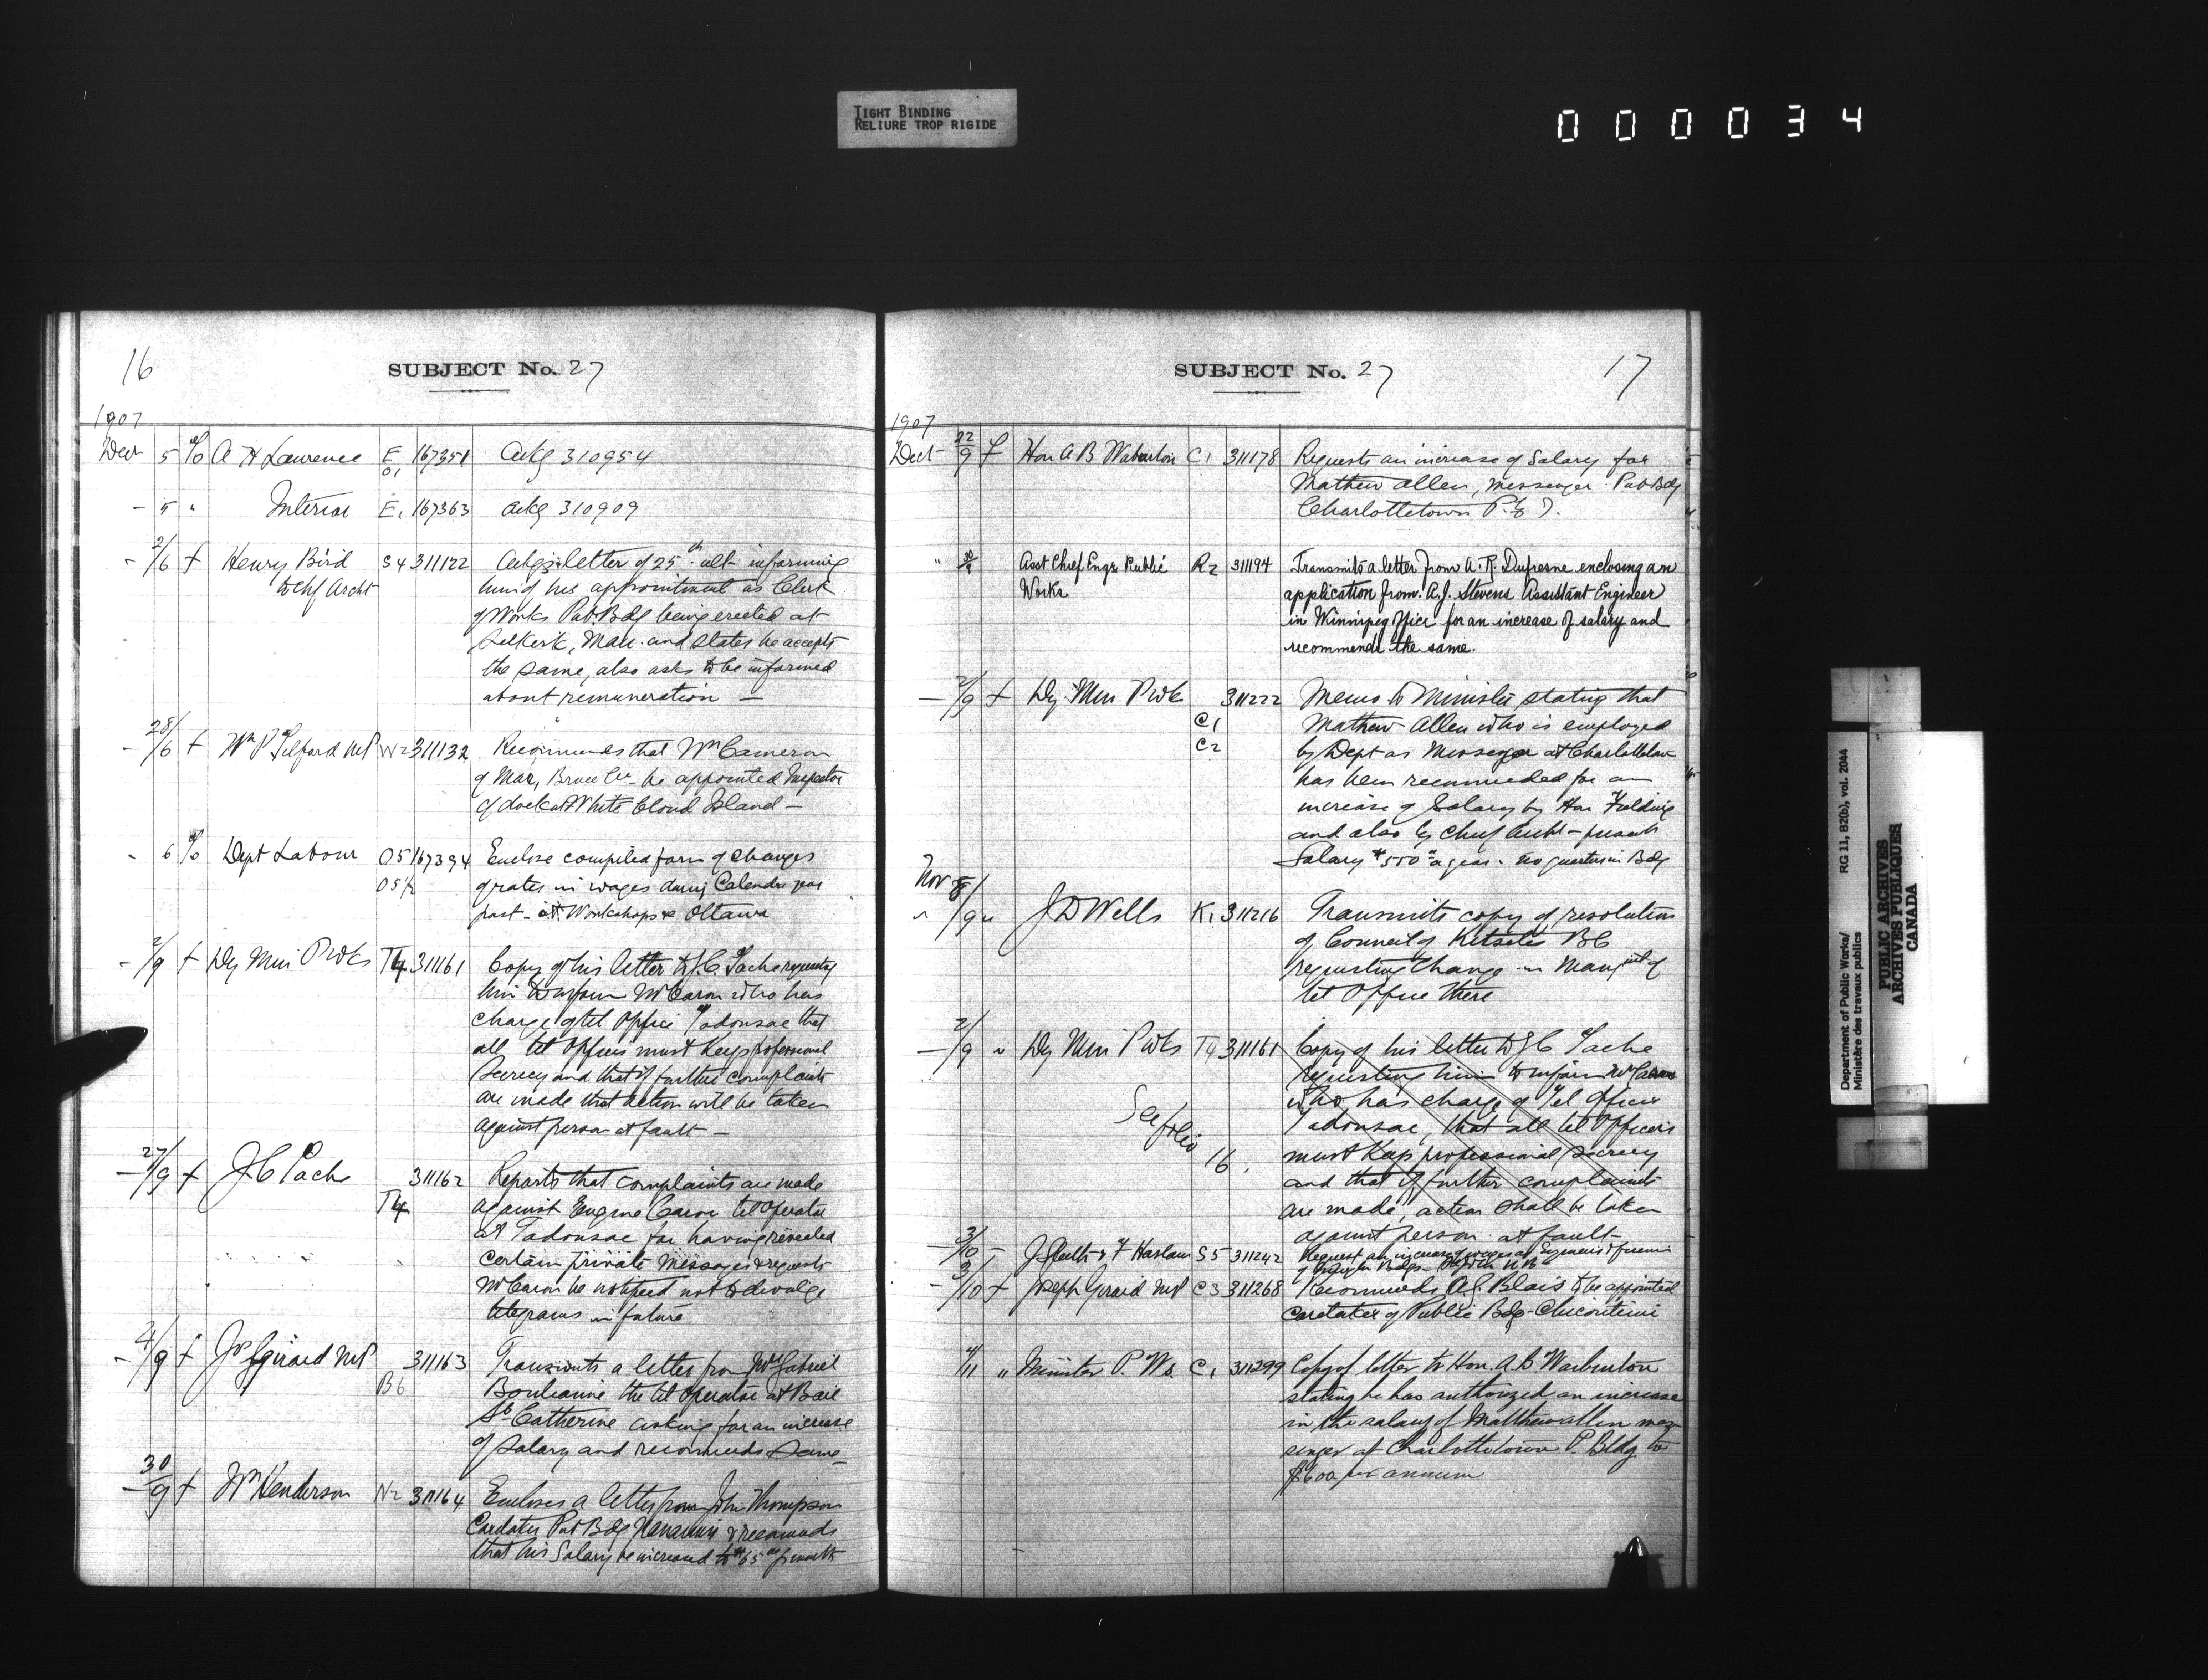 TIGHT BINDING
RELIURE TROP RIGIDE
000034
16
SUBJECT No. 27
1907
Decr 5 A H Lawrence E 167351 Ackg 310954
- 5 " Interior E1 167363 Ackg 310909
- 2/6 f Henry Bird S4 311122 Ackgs letter of 25th ult informing
to Chf Archt him of his appointment as Clerk
of Works Pub. Bdg being erected at
Selkirk, Man. and states he accepts
the same, also asks to be informed
about remuneration —
- 28/6 f Wm P Telford MP W2 311132 Recommends that Wm Cameron
of Mar, Bruce Co- be appointed Inspector
of dock at White Cloud Island —
" 6 Dept Labour O5 167394 Enclose compiled form of changes
O5½ of rates in wages during Calendar year
past - at Workshops Ottawa
- 2/9 f Dy Min P Wks T4 311161 Copy of his letter to J.C Tache requesting
him to inform Mr Caron who has
charge of tel Office Tadousac that
all tel Officers must keep professional
Secrecy and that if further complaints
are made that action will be taken
against person at fault —
- 27/9 f J C Tache 311162 Reports that complaints are made
T4 against Eugene Caron tel Operator
at Tadousac for having revealed
certain private messages & requests
Mr Caron be notified not to divulge
telegrams in future
- 4/9 f Jos Girard MP 311163 Transmits a letter from Mde Gabriel
B6 Boulianne the tel Operator at Baie
Ste Catherine asking for an increase
of Salary and recommends Same -
- 30/9 f Wm Henderson N2 311164 Encloses a letter from John Thompson
Cardater Pub Bdg Nanaimo & recommends
that his Salary be increased to $65 00 p month
SUBJECT No. 27
17
1907
Decr 22/9 f Hon A B Warburton C1 311178 Requests an increase of Salary for
Mathew Allen, messenger Pub Bdg
Charlottetown P.E.I.
" 30/9 Asst Chief Engr Public R2 31194 Transmits a letter from A.R. Dufresne enclosing an
Works application from A.J. Stevens Assistant Engineer
in Winnipeg office for an increase of salary and
recommends the same.
- 2/9 f Dy Min P Wk 311222 Memo to Minister stating that
C1 Mathew Allen who is employed
C2 by Dept as Messenger at Charlottetown
has been recommended for an
increase of Salary by Hon Fielding
and also by Chief Archt - present
Salary $550 00 a year. no quarters in Bdg
Nov 8/9 " J D Wells K1 311216 Transmits copy of resolution
of Council of Kitselas BC
requesting Change in Mangmt of
tel Office there
- 2/9 " Dy Min P Wks T4 311161 Copy of his letter to J C Tache
requesting him to inform Mr Caron
who has charge of Tel Office
See folio Tadousac, that all tel Officers
16. must keep professional Secrecy
and that if further complaints
are made, action shall be taken
against person at fault-
3/10 - J Sleeth & F Haslam S5 311242 Request an increase of wages as Engineers & firemen
- 3/10 f Joseph Girard MP C3 311268 Recommends A J. Blais to be appointed
Caretaker of Public Bdg - Chicoutimi
4/11 " Minister P. Ws. C1 311299 Copy of letter to Hon. A.B Warburton
stating he has authorized an increase
in the salary of Matthew Allen mes-
senger at Charlottetown P. Bldg. to
$600 per annum
Department of Public Works/
Ministère des travaux publics
RG 11, B2(b), vol. 2044
PUBLIC ARCHIVES
ARCHIVES PUBLIQUES
CANADA